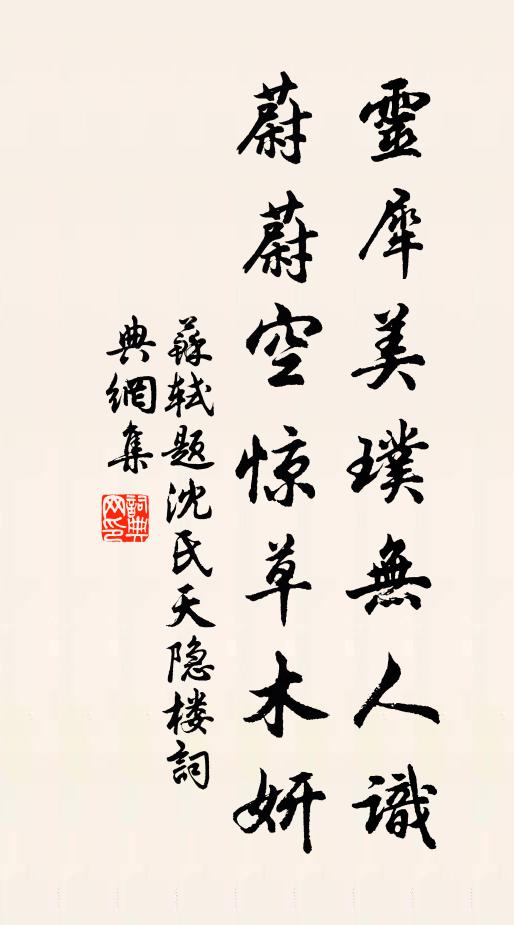 靈犀美璞無人識
蔚蔚空惊草木妍
蘇軾题沈氏天隐楼詞
典網集
詞典网印